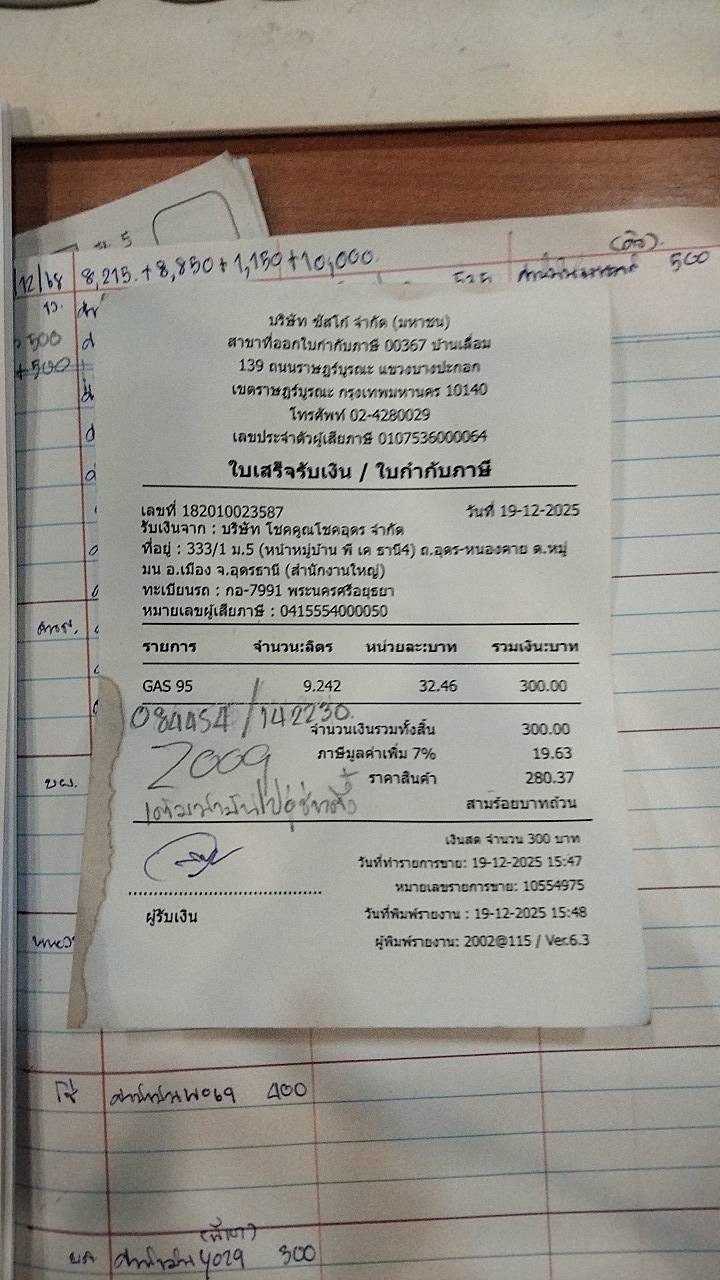 12/68 8,215.+8,850+1,150+10,000.
(ดิว).
500
บริษัท ซัสโก้ จำกัด (มหาชน)
สาขาที่ออกใบกำกับภาษี 00367 บ้านเลื่อม
139 ถนนราษฎร์บูรณะ แขวงบางปะกอก
เขตราษฎร์บูรณะ กรุงเทพมหานคร 10140
โทรศัพท์ 02-4280029
เลขประจำตัวผู้เสียภาษี 0107536000064
ใบเสร็จรับเงิน / ใบกำกับภาษี
เลขที่ 182010023587 วันที่ 19-12-2025
รับเงินจาก : บริษัท โชคคูณโชคอุดร จำกัด
ที่อยู่ : 333/1 ม.5 (หน้าหมู่บ้าน พี เค ธานี4) ถ.อุดร-หนองคาย ต.หมู
มน อ.เมือง จ.อุดรธานี (สำนักงานใหญ่)
ทะเบียนรถ : กอ-7991 พระนครศรีอยุธยา
หมายเลขผู้เสียภาษี : 0415554000050
รายการ จำนวน:ลิตร หน่วยละ:บาท รวมเงิน:บาท
GAS 95 9.242 32.46 300.00
084454/142230.
จำนวนเงินรวมทั้งสิ้น 300.00
2009
ภาษีมูลค่าเพิ่ม 7% 19.63
ราคาสินค้า 280.37
เติมน้ำมันไปอู่ช่างตั้ว
สามร้อยบาทถ้วน
เงินสด จำนวน 300 บาท
วันที่ทำรายการขาย: 19-12-2025 15:47
หมายเลขรายการขาย: 10554975
ผู้รับเงิน
วันที่พิมพ์รายงาน : 19-12-2025 15:48
ผู้พิมพ์รายงาน: 2002@115 / Ver.6.3
400
4029 300